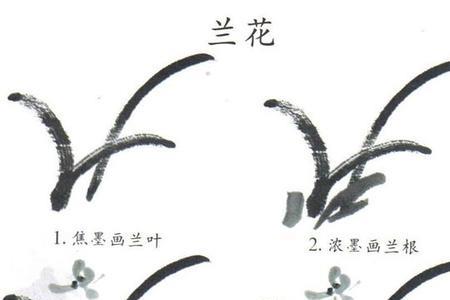 兰花
1. 焦墨画兰叶
2. 浓墨画兰根